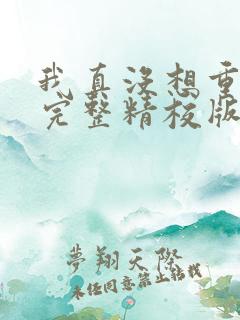 我真没想重
完整精校版
夢翔天際
未经同意禁止转载